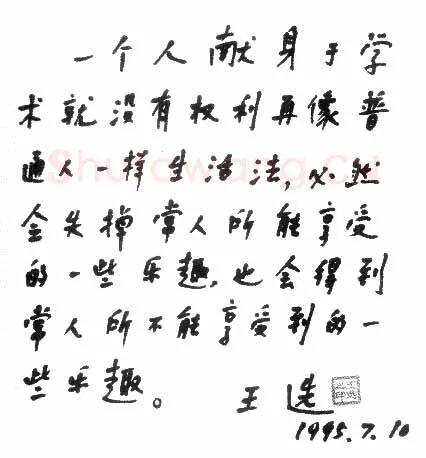 一个人献身于学
术就没有权利再像普
通人一样生活法,必然
会失掉常人所能享受
的一些乐趣,也会得到
常人所不能享受到的一
些乐趣。
王选
1995.7.10